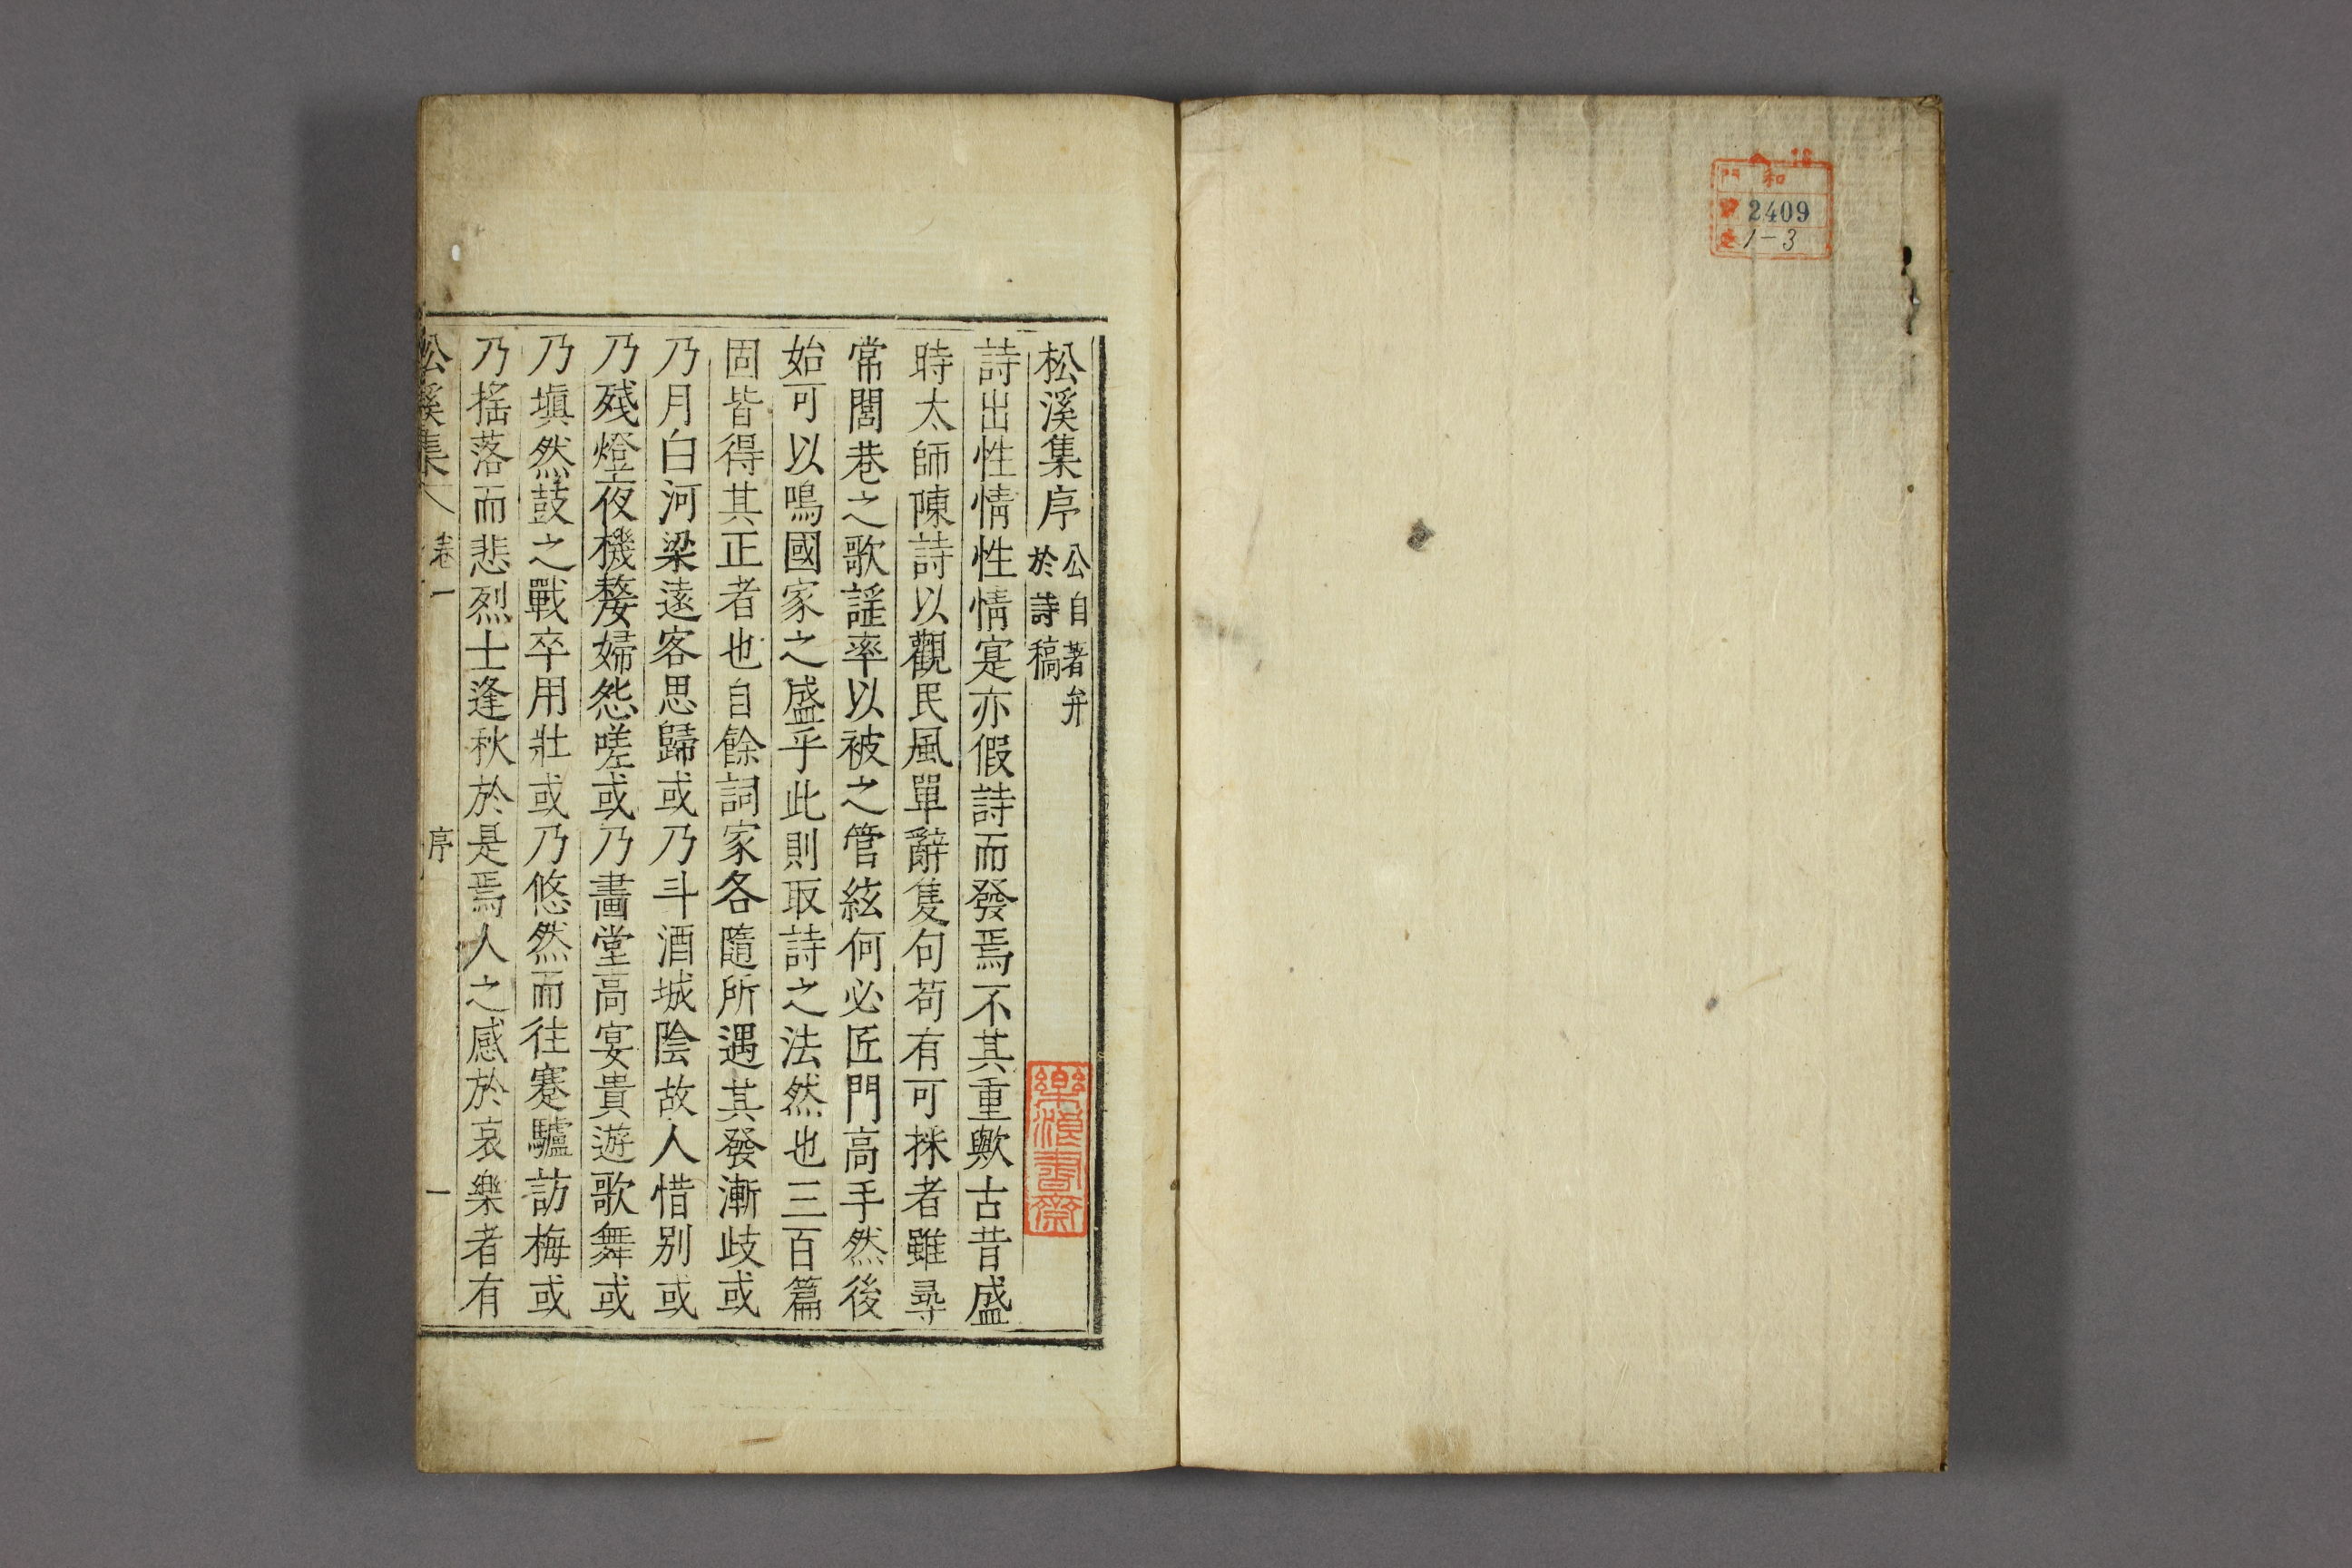 和
門
2409
1-3
松溪集序 公自著弁
於詩稿
詩出性情性情寔亦假詩而發焉不其重歟古昔盛
時太師陳詩以觀民風單辭隻句苟有可採者雖尋
常閭巷之歌謡率以被之管絃何必匠門高手然後
始可以鳴國家之盛乎此則取詩之法然也三百篇
固皆得其正者也自餘詞家各隨所遇其發漸歧或
乃月白河梁遠客思歸或乃斗酒城陰故人惜别或
乃殘燈夜機嫠婦怨嗟或乃畫堂高宴貴遊歌舞或
乃塡然鼓之戰卒用壯或乃悠然而往蹇驢訪梅或
乃搖落而悲烈士逢秋於是焉人之感於哀樂者有
松溪集 卷一 序 一
樂浪書齋